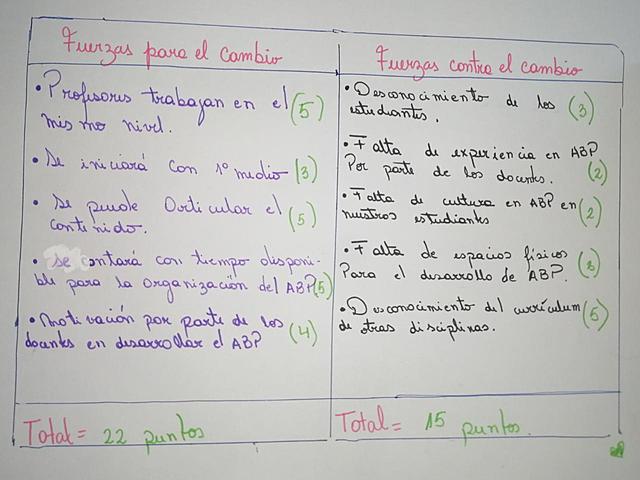 Fuerzas para el cambio
• Profesores trabajan en el (5)
mismo nivel.
• Se iniciará con 1º medio (3)
• Se puede articular el (5)
contenido.
• Se contará con tiempo disponi-
ble para la organización del ABP (5)
• Motivación por parte de los
docentes en desarrollar el ABP (4)
Total = 22 puntos
Fuerzas contra el cambio
• Desconocimiento de los (3)
estudiantes.
• Falta de experiencia en ABP
Por parte de los docentes. (2)
• Falta de cultura en ABP en (2)
nuestros estudiantes
• Falta de espacios físicos (3)
Para el desarrollo de ABP.
• Desconocimiento del currículum (5)
de otras disciplinas.
Total = 15 puntos.